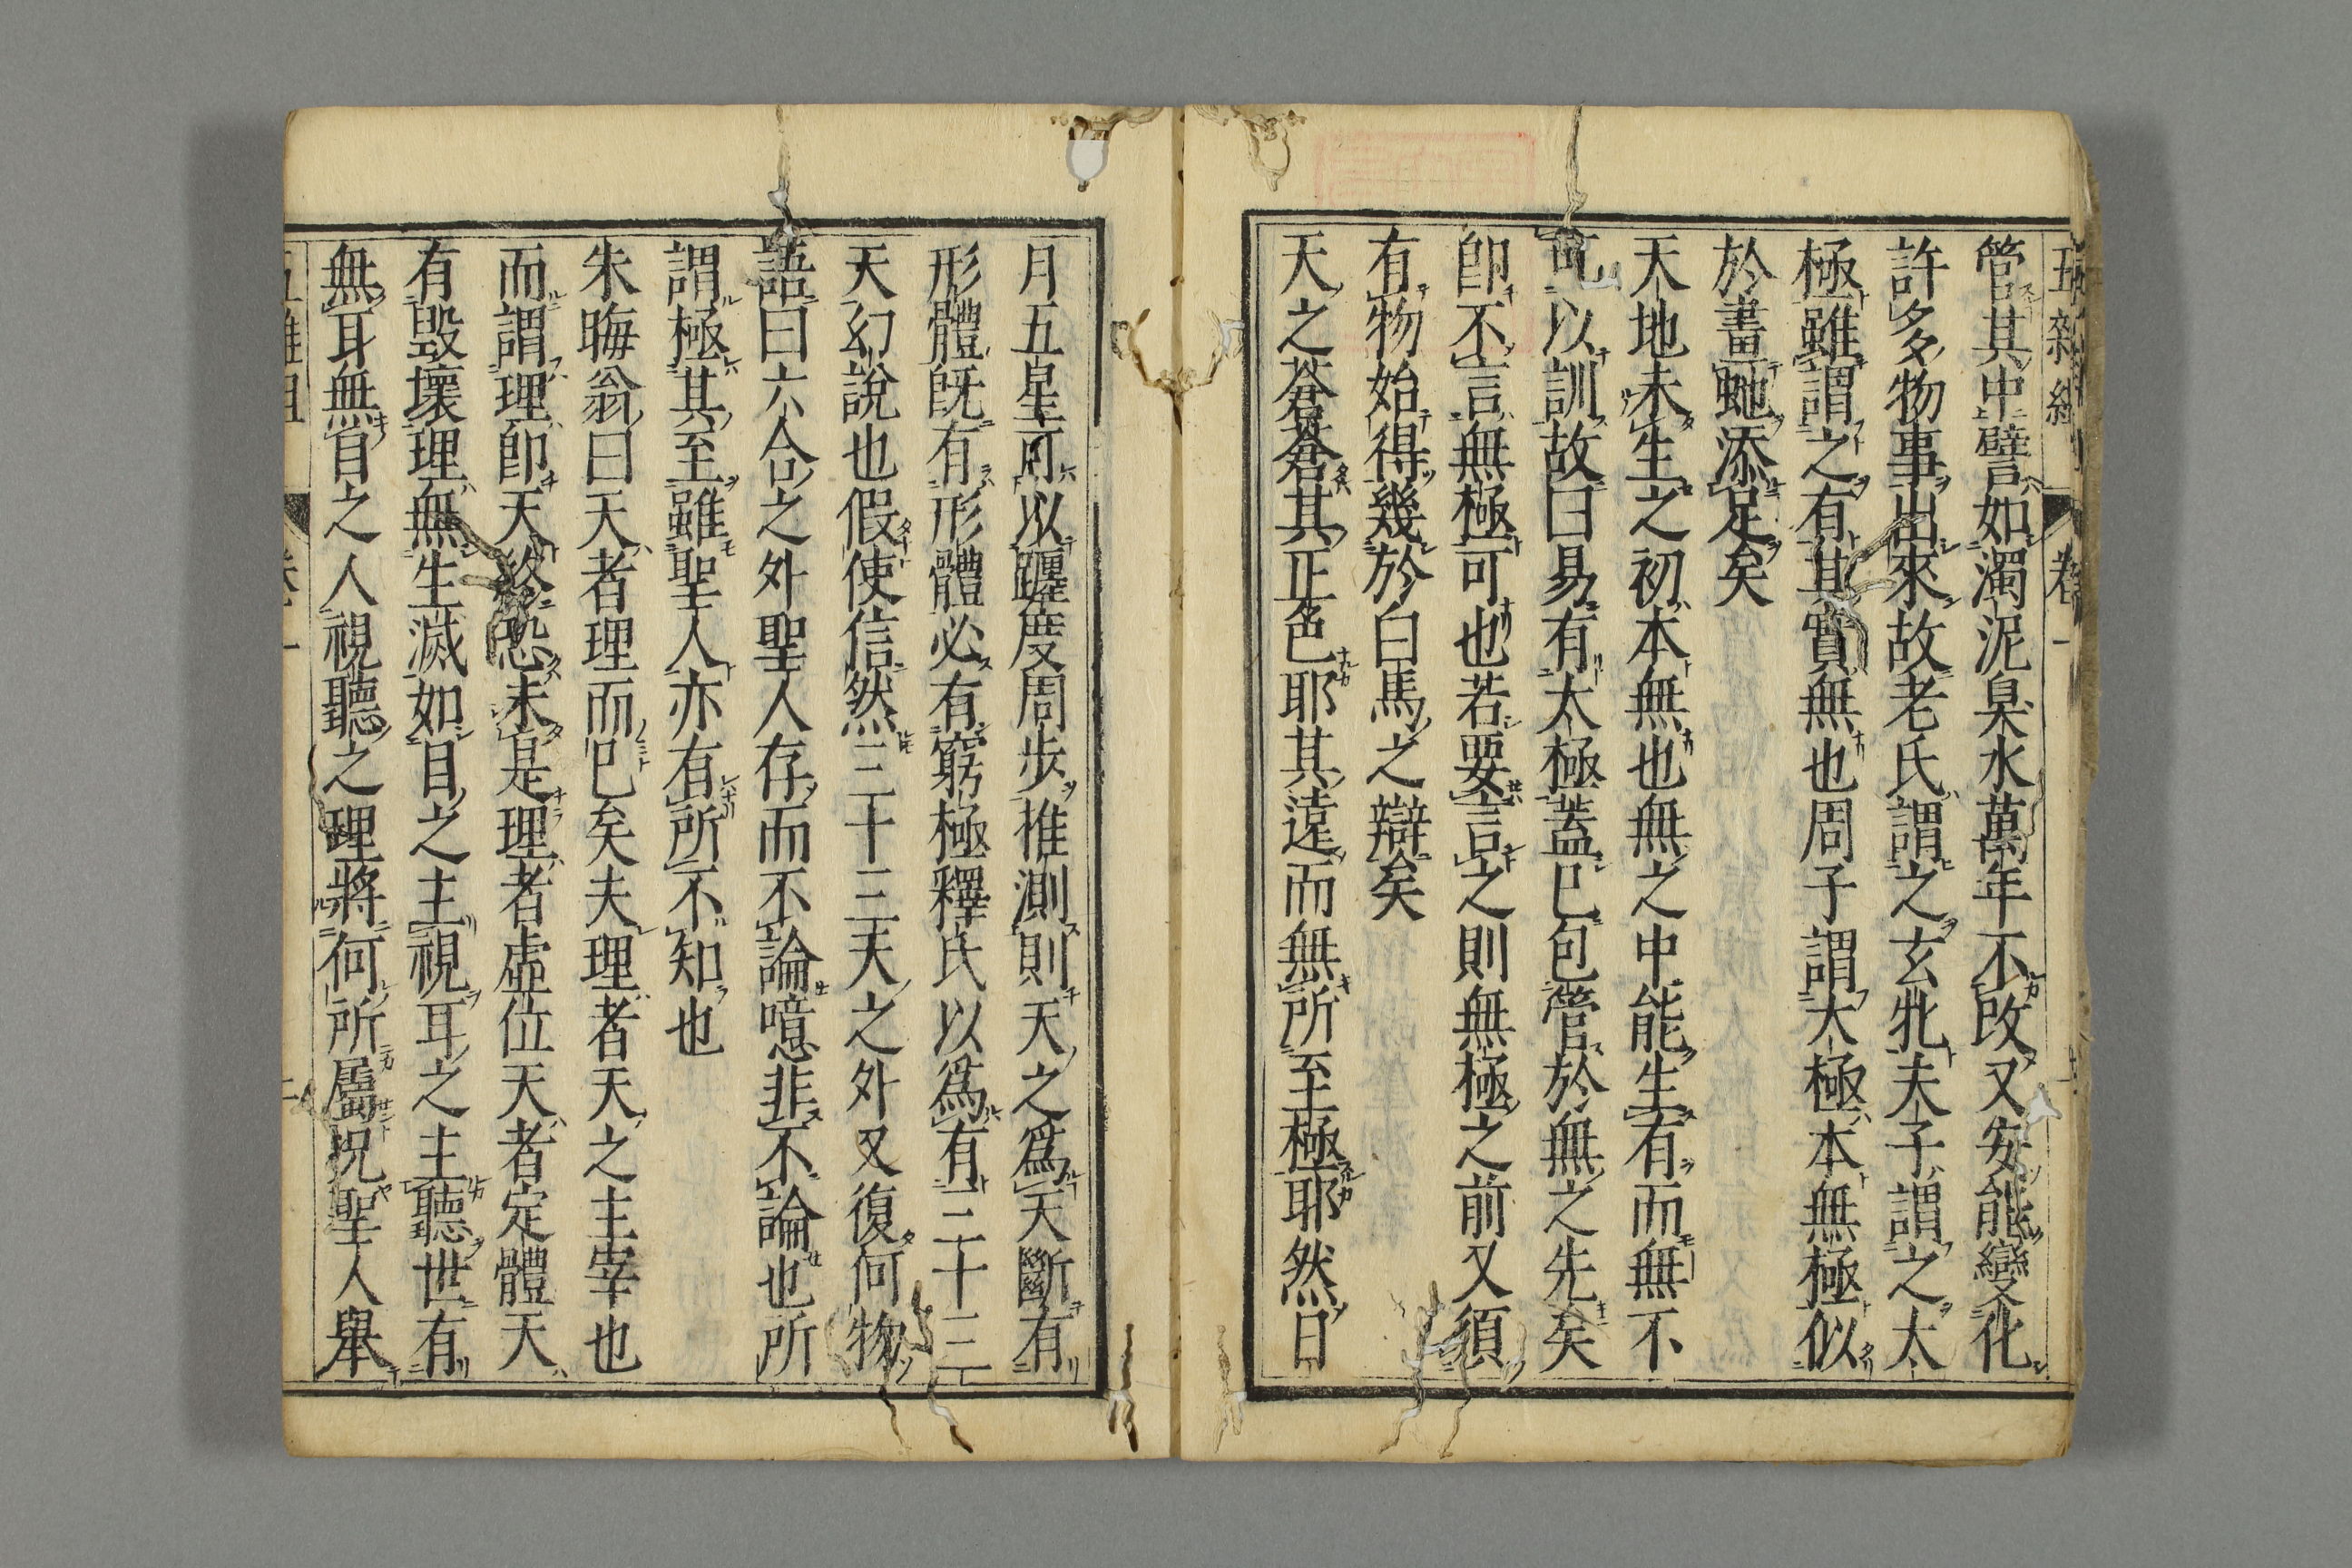 管其中譬如濁泥臭水萬年不改又安能變化
許多物事出來故老氏謂之玄牝夫子謂之太
極雖謂之有其實無也周子謂太極本無極似
於畫虵添足矣
天地未生之初本無也無之中能生有而無不
可以訓故曰易有太極蓋已包管於無之先矣
卽不言無極可也若要言之則無極之前又須
有物始得幾於白馬之辯矣
天之蒼蒼其正色耶其遠而無所至極耶然日
月五星可以躔度周步推測則天之爲天斷有
形體旣有形體必有窮極釋氏以爲有三十三
天幻說也假使信然三十三天之外又復何物
語曰六合之外聖人存而不論噫非不論也所
謂極其至雖聖人亦有所不知也
朱晦翁曰天者理而已矣夫理者天之主宰也
而謂理卽天終恐未是理者虛位天者定體天
有毀壞理無生滅如目之主視耳之主聽世有
無耳無目之人視聽之理將何所屬況聖人舉
五雜俎 卷一